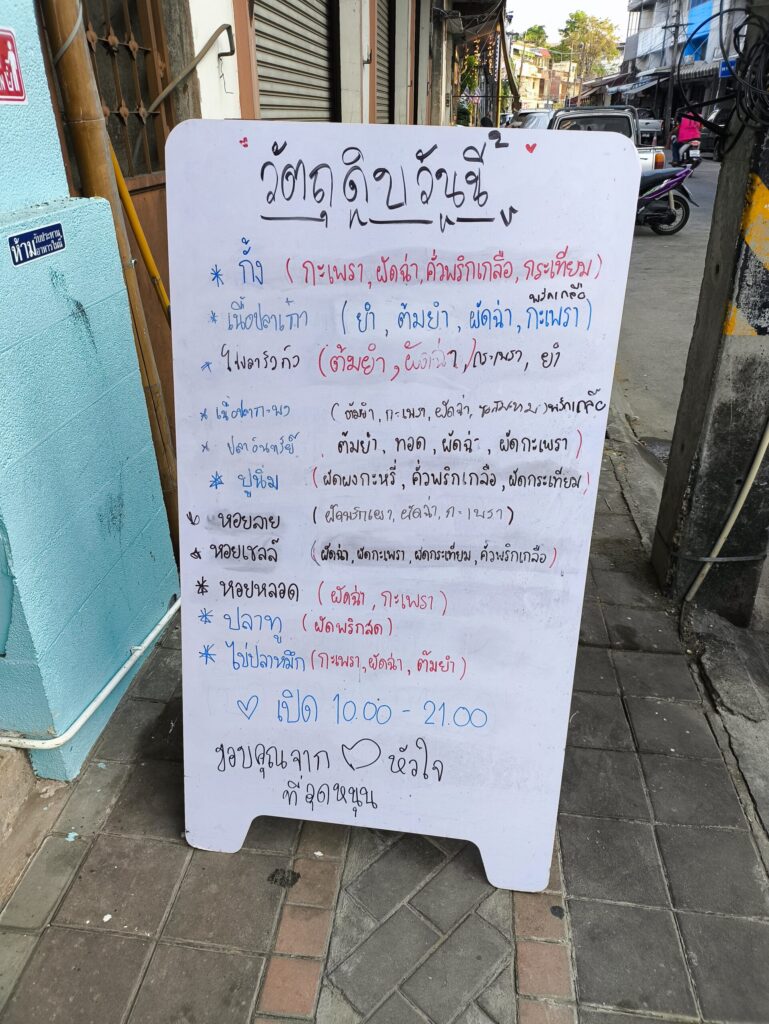 ห้าม รับประทาน
อาหารในนี้
วัตถุดิบวันนี้
* กั้ง (กะเพรา, ผัดฉ่า, คั่วพริกเกลือ, กระเทียม)
* เนื้อปลาเก๋า (ยำ, ต้มยำ, ผัดฉ่า, กะเพรา) พริกเกลือ
* (ต้มยำ, ผัดฉ่า, กะเพรา, ยำ
* เนื้อปลากะพง (ต้มยำ, กะเพรา, ผัดฉ่า, พริกเกลือ
* ปลาอินทรีย์ ต้มยำ, ทอด, ผัดฉ่า, ผัดกะเพรา)
* ปูนิ่ม (ผัดผงกะหรี่, คั่วพริกเกลือ, ผัดกระเทียม)
หอยลาย (ผัดพริกเผา, ผัดฉ่า, กะเพรา)
* หอยเชลล์ (ผัดฉ่า, ผัดกะเพรา, ผัดกระเทียม, คั่วพริกเกลือ)
* หอยหลอด (ผัดฉ่า, กะเพรา)
* ปลาทู (ผัดพริกสด)
* ไข่ปลาหมึก (กะเพรา, ผัดฉ่า, ต้มยำ)
♡ เปิด 10.00 - 21.00
ขอบคุณจาก ♡ หัวใจ
ที่อุดหนุน